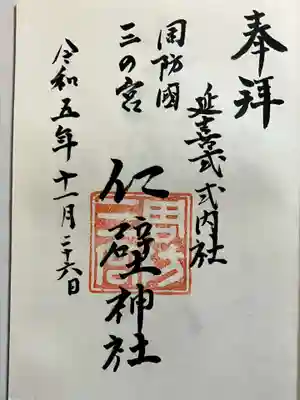 奉拝
延喜式式内社
周防國
三の宮
仁壁神社
令和五年十一月二十六日